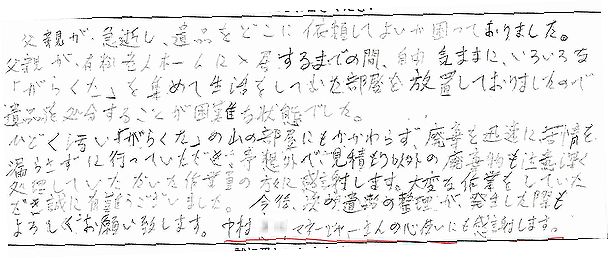 父親が、急逝し、遺品をどこに依頼してよいか困っておりました。
父親が、有料老人ホームに入居するまでの間、自由気ままに、いろいろな
「がらくた」を集めて生活をしていた部屋を放置しておりましたので
遺品を処分することが困難な状態でした。
ひどく汚い「がらくた」の山の部屋にもかかわらず、廃棄を迅速に苦情を
漏らさずに行っていただき、予想外で見積もり以外の廃棄物も注意深く
処理していただいた作業員の方々に感謝します。大変な作業をしていた
だき誠に有難うございました。今後、次の遺品の整理が発生した際も
よろしくお願い致します。中村 マネージャーさんの心使いにも感謝します。